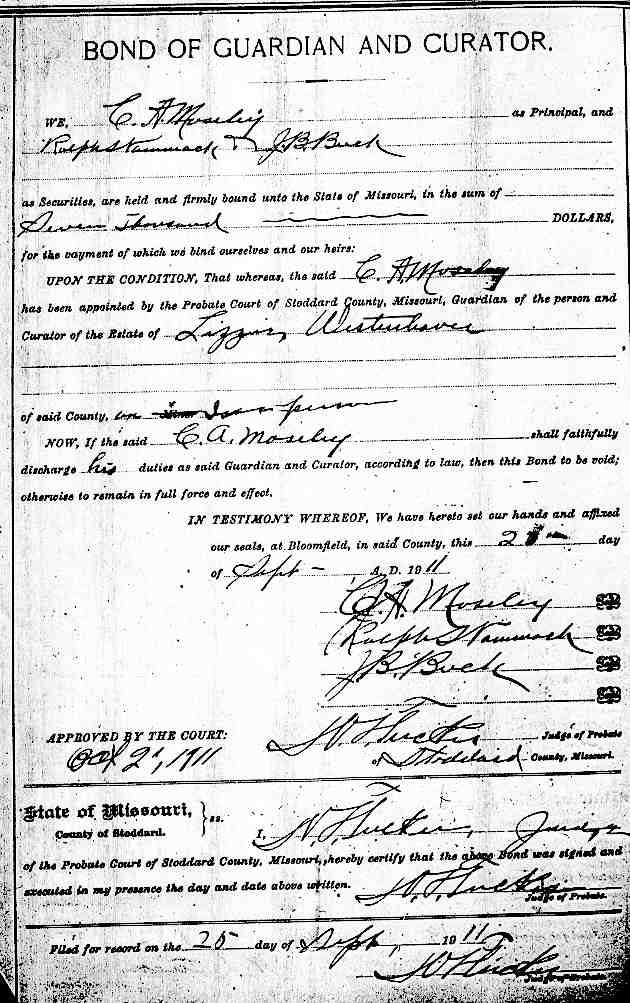 BOND OF GUARDIAN AND CURATOR.
WE, C. A. Moseley as Principal, and
Ralph S Kammack & J. B. Buck
as Securities, are held and firmly bound unto the State of Missouri, in the sum of
Seven Thousand DOLLARS,
for the payment of which we bind ourselves and our heirs:
UPON THE CONDITION, That whereas, the said C. A. Moseley
has been appointed by the Probate Court of Stoddard County, Missouri, Guardian of the person and
Curator of the Estate of Westerhaver
of said County, person
NOW, If the said C. A. Moseley shall faithfully
discharge his duties as said Guardian and Curator, according to law, then this Bond to be void;
otherwise to remain in full force and effect.
IN TESTIMONY WHEREOF, We have hereto set our hands and affixed
our seals, at Bloomfield, in said County, this day
of Sept A. D. 1911
C. A. Moseley
Ralph S Kammack
J. B. Buck
APPROVED BY THE COURT: Judge of Probate
Oct 2, 1911 of Stoddard County, Missouri.
State of Missouri, } ss.
County of Stoddard. I, Judge
of the Probate Court of Stoddard County, Missouri, hereby certify that the above Bond was signed and
executed in my presence the day and date above written.
Judge of Probate.
Filed for record on the 25 day of Sept, 1911
Judge of Probate.